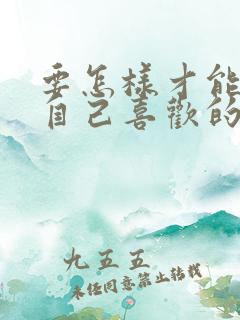 要怎樣才能
自己喜歡的
九五五
未经同意禁止转载